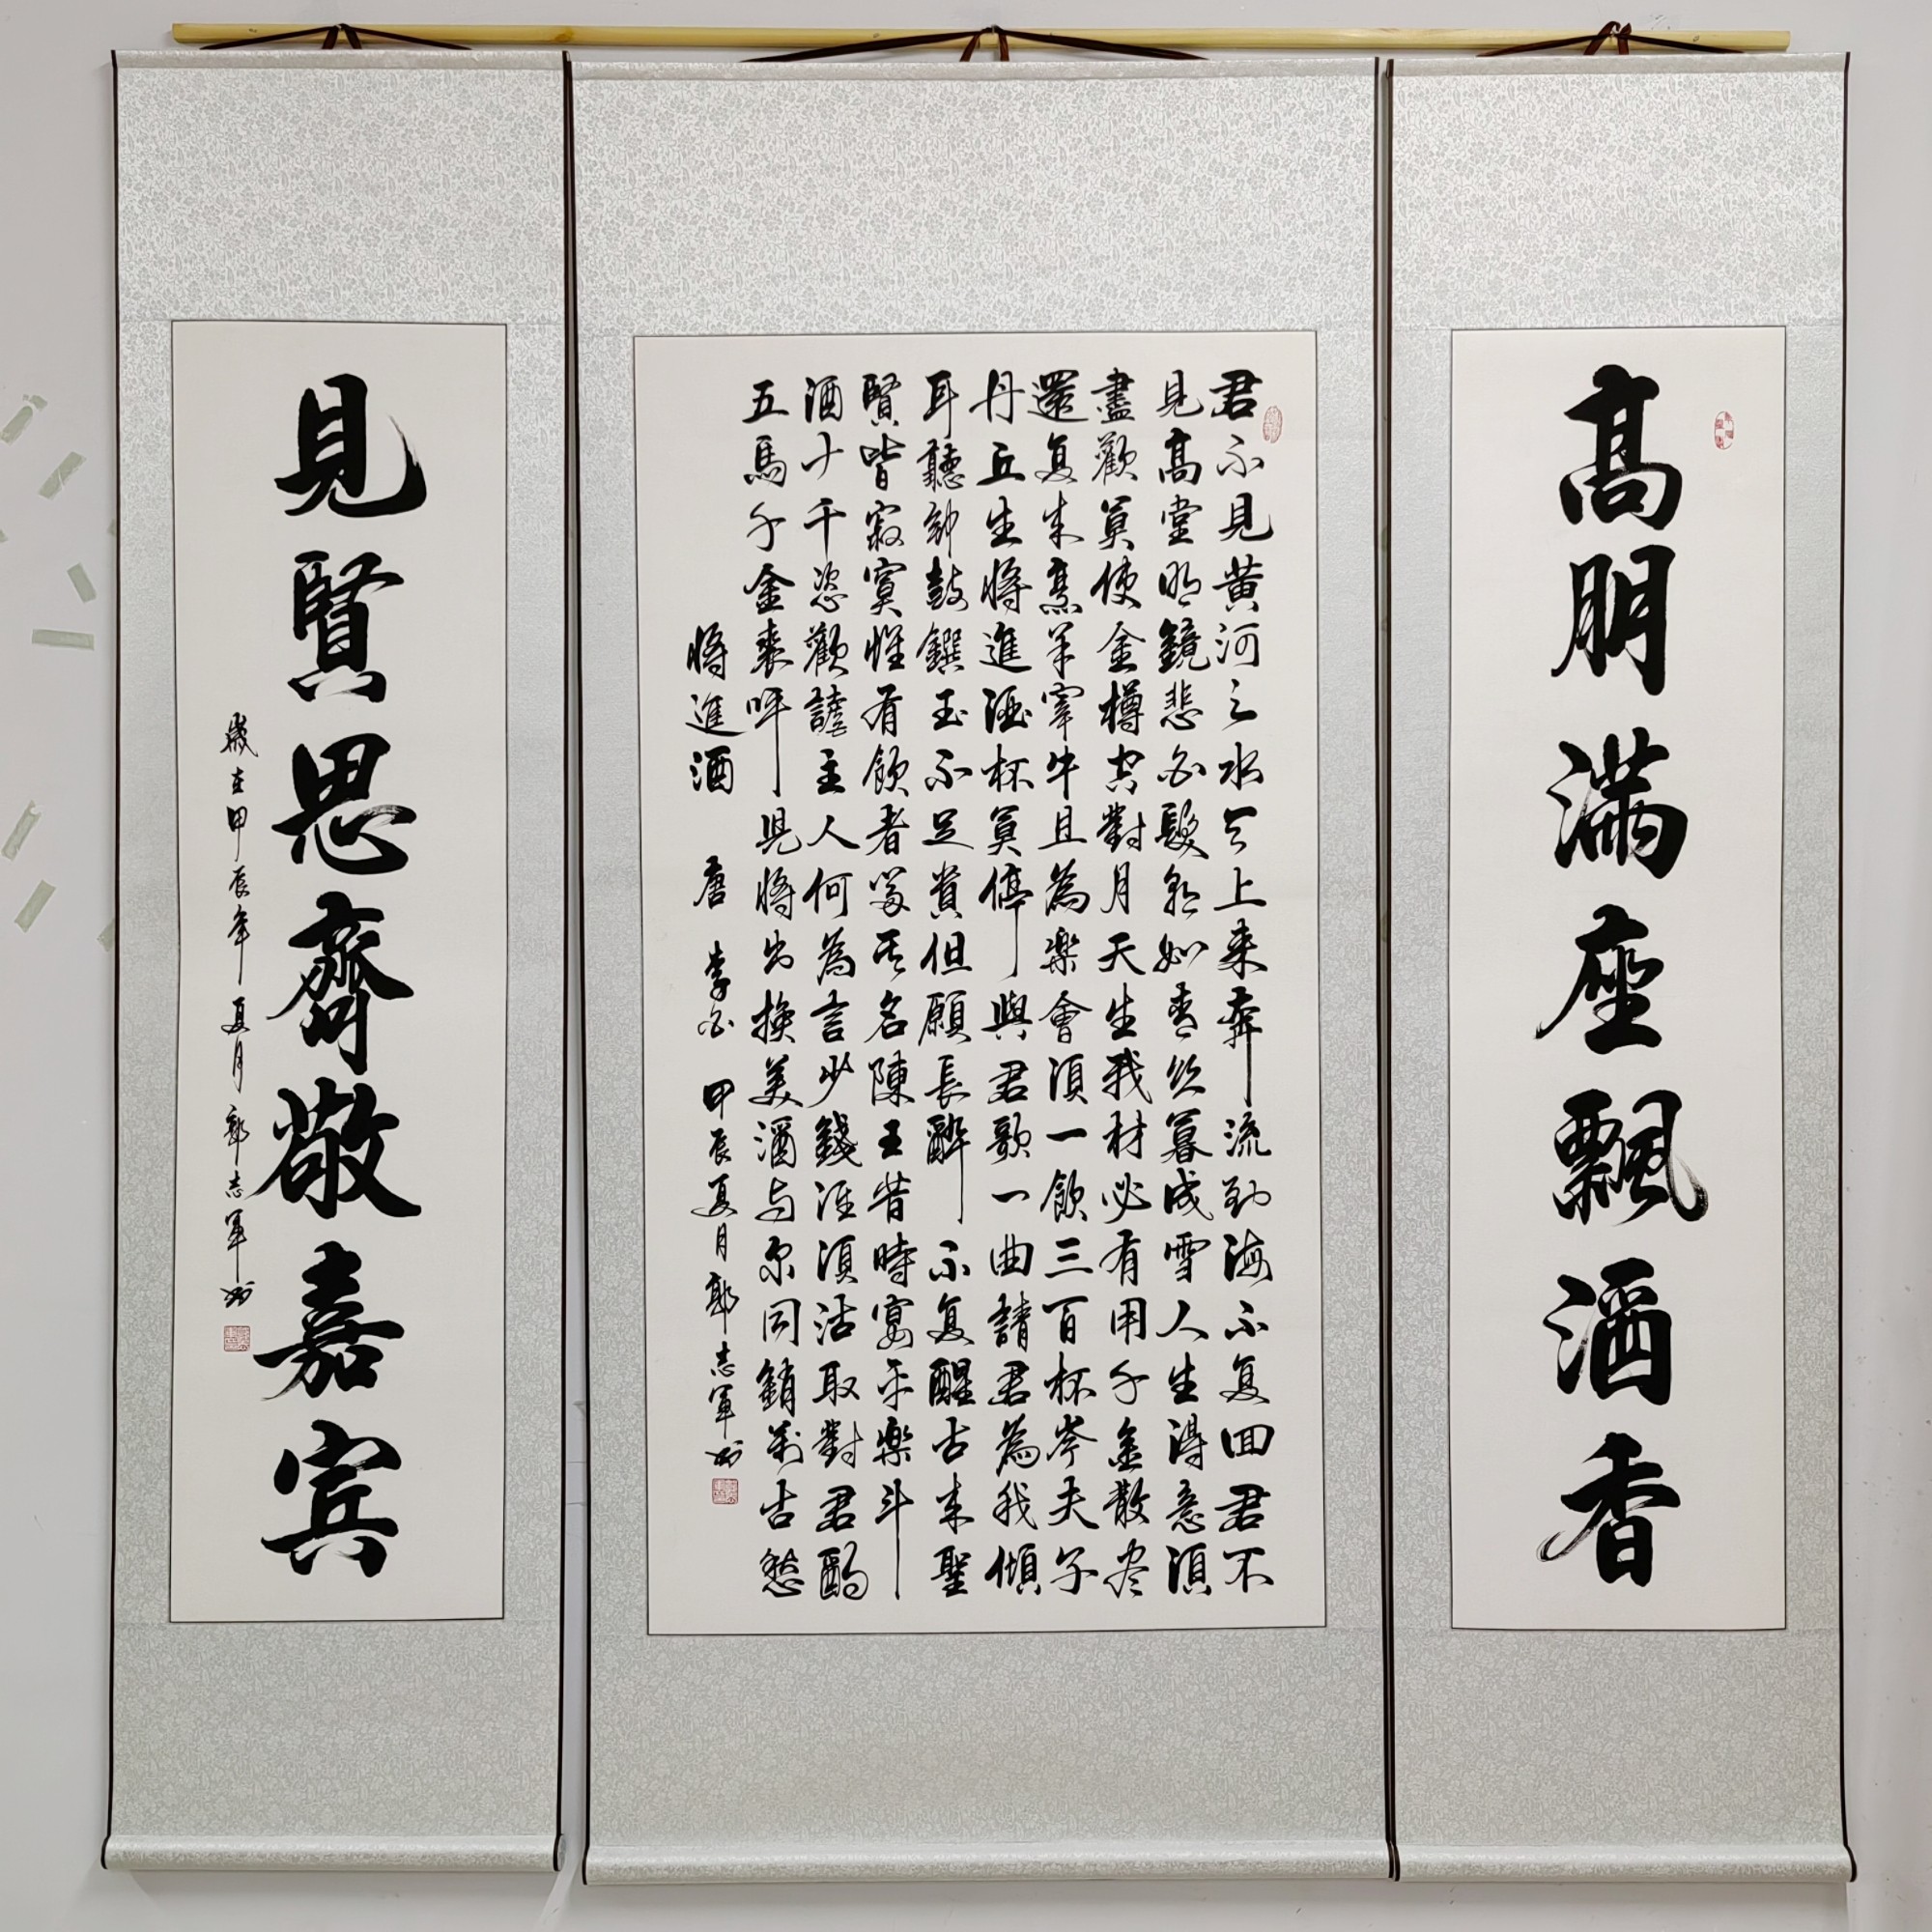 高朋满座飘酒香
君不見黄河之水天上来奔流到海不复回君不
見高堂明鏡悲白髮朝如青丝暮成雪人生得意須
盡歡莫使金樽空對月天生我材必有用千金散尽
還复来烹羊宰牛且為樂會須一飲三百杯岑夫子
丹丘生將進酒杯莫停與君歌一曲請君為我傾
耳聽鈡鼓饌玉不足貴但願長醉不复醒古来聖
賢皆寂寞惟有飲者留其名陳王昔時宴平樂斗
酒十千恣歡謔主人何為言少錢迳須沽取對君酌
五馬千金裘呼兒將出換美酒与尔同銷萬古愁
將進酒 唐 李白 甲辰夏月郭志軍书
見賢思齊敬嘉宾
歲在甲辰年夏月郭志軍书